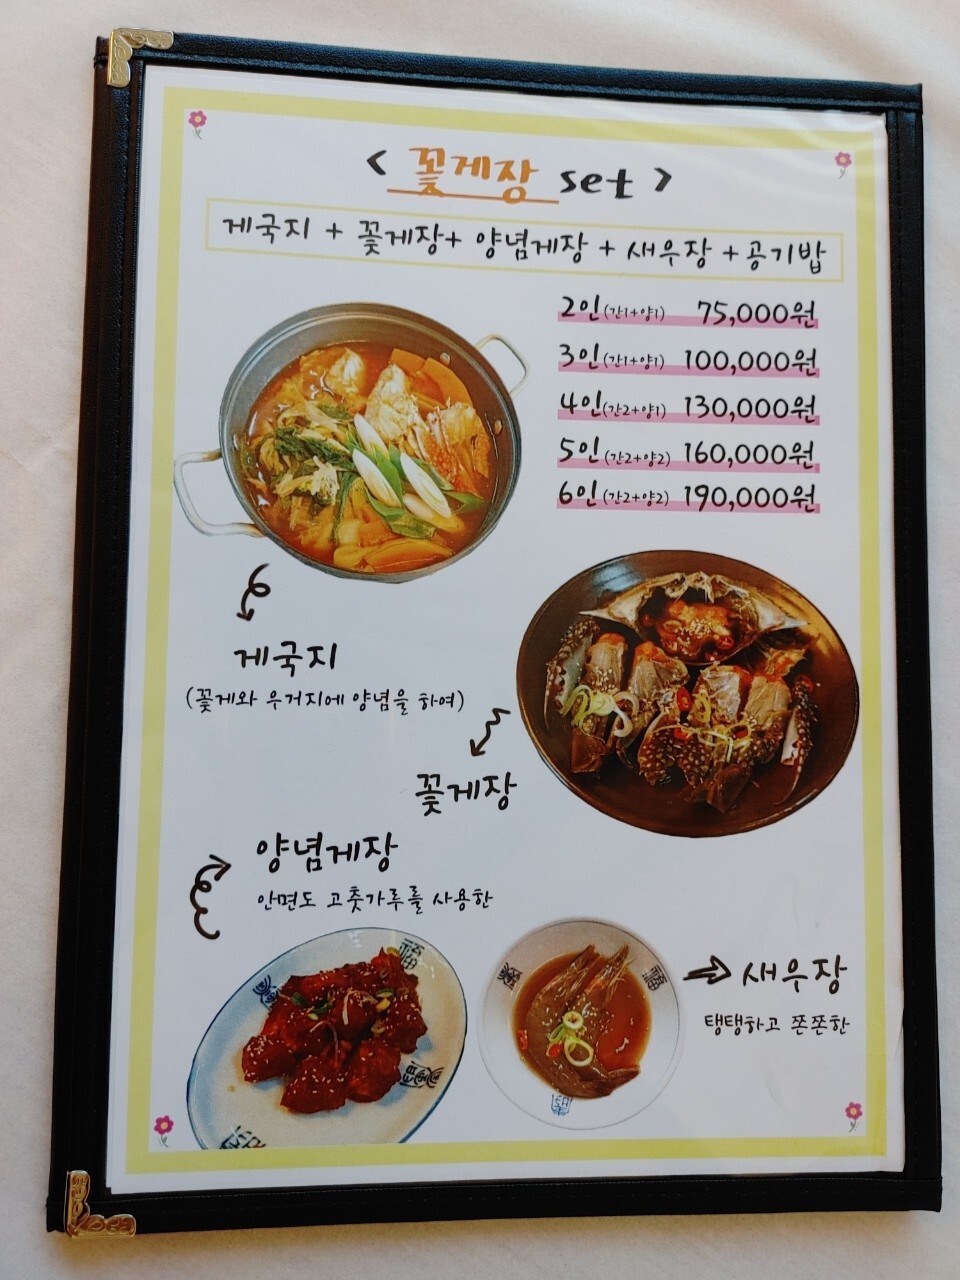 < 꽃게장 set >
게국지 + 꽃게장+ 양념게장 + 새우장 +공기밥
2인(간1+양1) 75,000원
3인(간1+양1) 100,000원
4인(간2+양1) 130,000원
5인(간2+양2) 160,000원
6인(간2+양2) 190,000원
게국지
(꽃게와 우거지에 양념을 하여)
꽃게장
양념게장
안면도 고춧가루를 사용한
새우장
탱탱하고 쫀쫀한